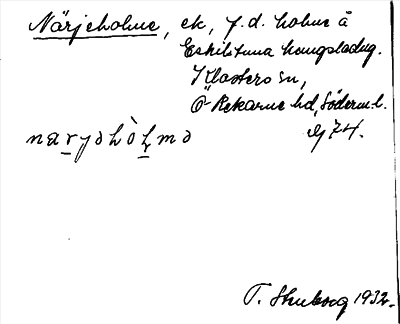 Närjeholme, ek, f.d. holme å
Eskilstuna kungsladug.
Klosters sn,
Ö Rekarne hd, Söderml.
naryəhòḷmə 74.
T. Stenborg 1932.